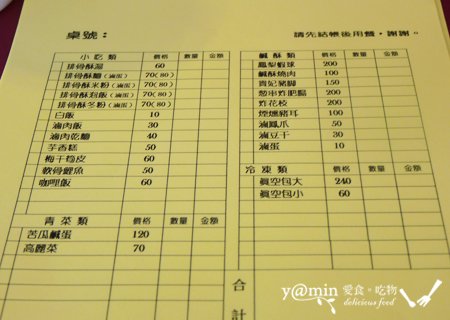 桌號：
請先結帳後用餐，謝謝。
小吃類 價格 數量 金額
排骨酥湯 60
排骨酥麵（滷蛋） 70(80)
排骨酥米粉（滷蛋） 70(80)
排骨酥粄飯（滷蛋） 70(80)
排骨酥冬粉（滷蛋） 70(80)
白飯 10
滷肉飯 30
滷肉乾麵 40
芋香糕 50
梅干筍皮 60
軟骨鯉魚 50
咖哩飯 60
青菜類 價格 數量 金額
苦瓜鹹蛋 120
高麗菜 70
鹹酥類 價格 數量 金額
鳳梨蝦球 200
鹹酥燒肉 100
貴妃豬腳 150
蔥串炸肥腸 200
炸花枝 200
煙燻豬耳 100
滷鳳爪 50
滷豆干 30
滷蛋 10
冷凍類 價格 數量 金額
真空包大 240
真空包小 60
合計
y@min 愛食。吃物
delicious food